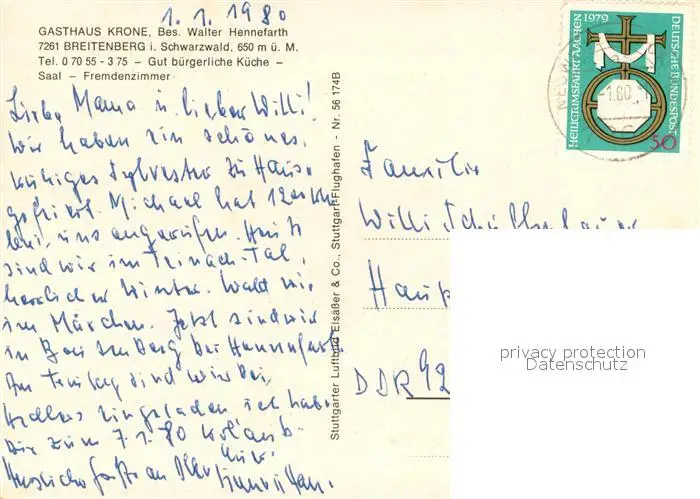 1.1.1980
GASTHAUS KRONE, Bes. Walter Hennefarth
7261 BREITENBERG i. Schwarzwald, 650 m ü. M.
Tel. 0 70 55 - 3 75 – Gut bürgerliche Küche –
Saal – Fremdenzimmer
Liebe Mama u. lieber Willi!
Wir haben ein schönes,
ruhiges Sylvester zu Haus
gefeiert. Michael hat
uns angerufen. Heute
sind wir im Teinach-Tal,
herrlicher Winter. Wald wie
im Märchen. Jetzt sind wir
in Breitenberg bei Hennefarth
Am Freitag sind wir bei
eingeladen ich habe
bis zum 7.1.80 Urlaub
Herzliche Grüße an
Stuttgarter Luftbild Elsäßer & Co., Stuttgart-Flughafen - Nr. 56 174B
HEILIGTUMSFAHRT AACHEN 1979
DEUTSCHE BUNDESPOST
50
Familie
Willi
DDR 92
privacy protection
Datenschutz